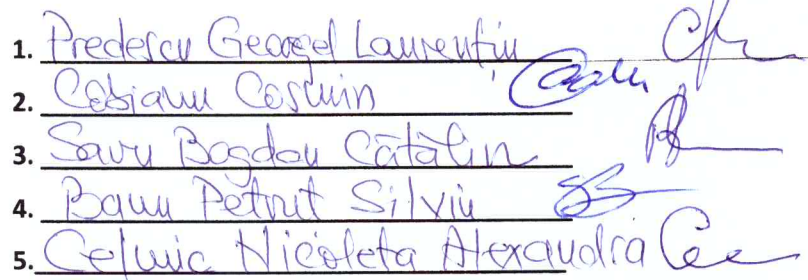 1. Predescu Georgel Laurenţiu
2. Cobianu Cosmin
3. Savu Bogdan Cătălin
4. Banu Petruț Silviu
5. Celmic Nicoleta Alexandra